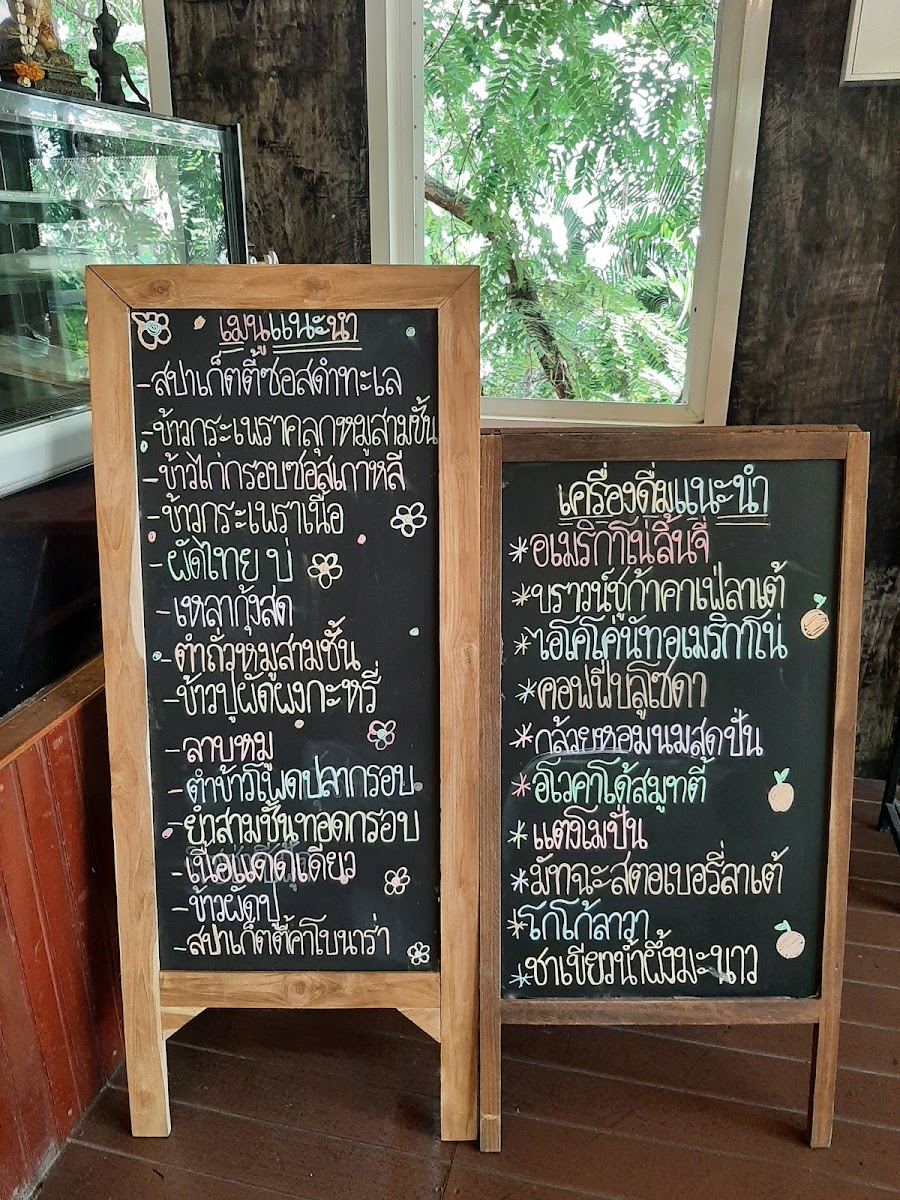 เมนูแนะนำ
-สปาเก็ตตี้ซอสดำทะเล
-ข้าวกระเพราคลุกหมูสามชั้น
-ข้าวไก่กรอบซอสเกาหลี
-ข้าวกระเพราเนื้อ
-ผัดไทย ปู
-เหลากุ้งสด
-ตำถั่วหมูสามชั้น
-ข้าวปูผัดผงกะหรี่
-ลาบหมู
-ตำข้าวโพดปลากรอบ
-ยำสามชั้นทอดกรอบ
-เนื้อแดดเดียว
-ข้าวผัดปู
-สปาเก็ตตี้คาโบนาร่า
เครื่องดื่มแนะนำ
*อเมริกาโน่ลิ้นจี่
*บราวน์ชูก้าคาเฟ่ลาเต้
*ไอโคโค่นัทอเมริกาโน่
*คอฟฟี่บลูโซดา
*กล้วยหอมนมสดปั่น
*อโวคาโด้สมูทตี้
*แตงโมปั่น
*มัทฉะสตอเบอรี่ลาเต้
*โกโก้ลาวา
*ชาเขียวน้ำผึ้งมะนาว